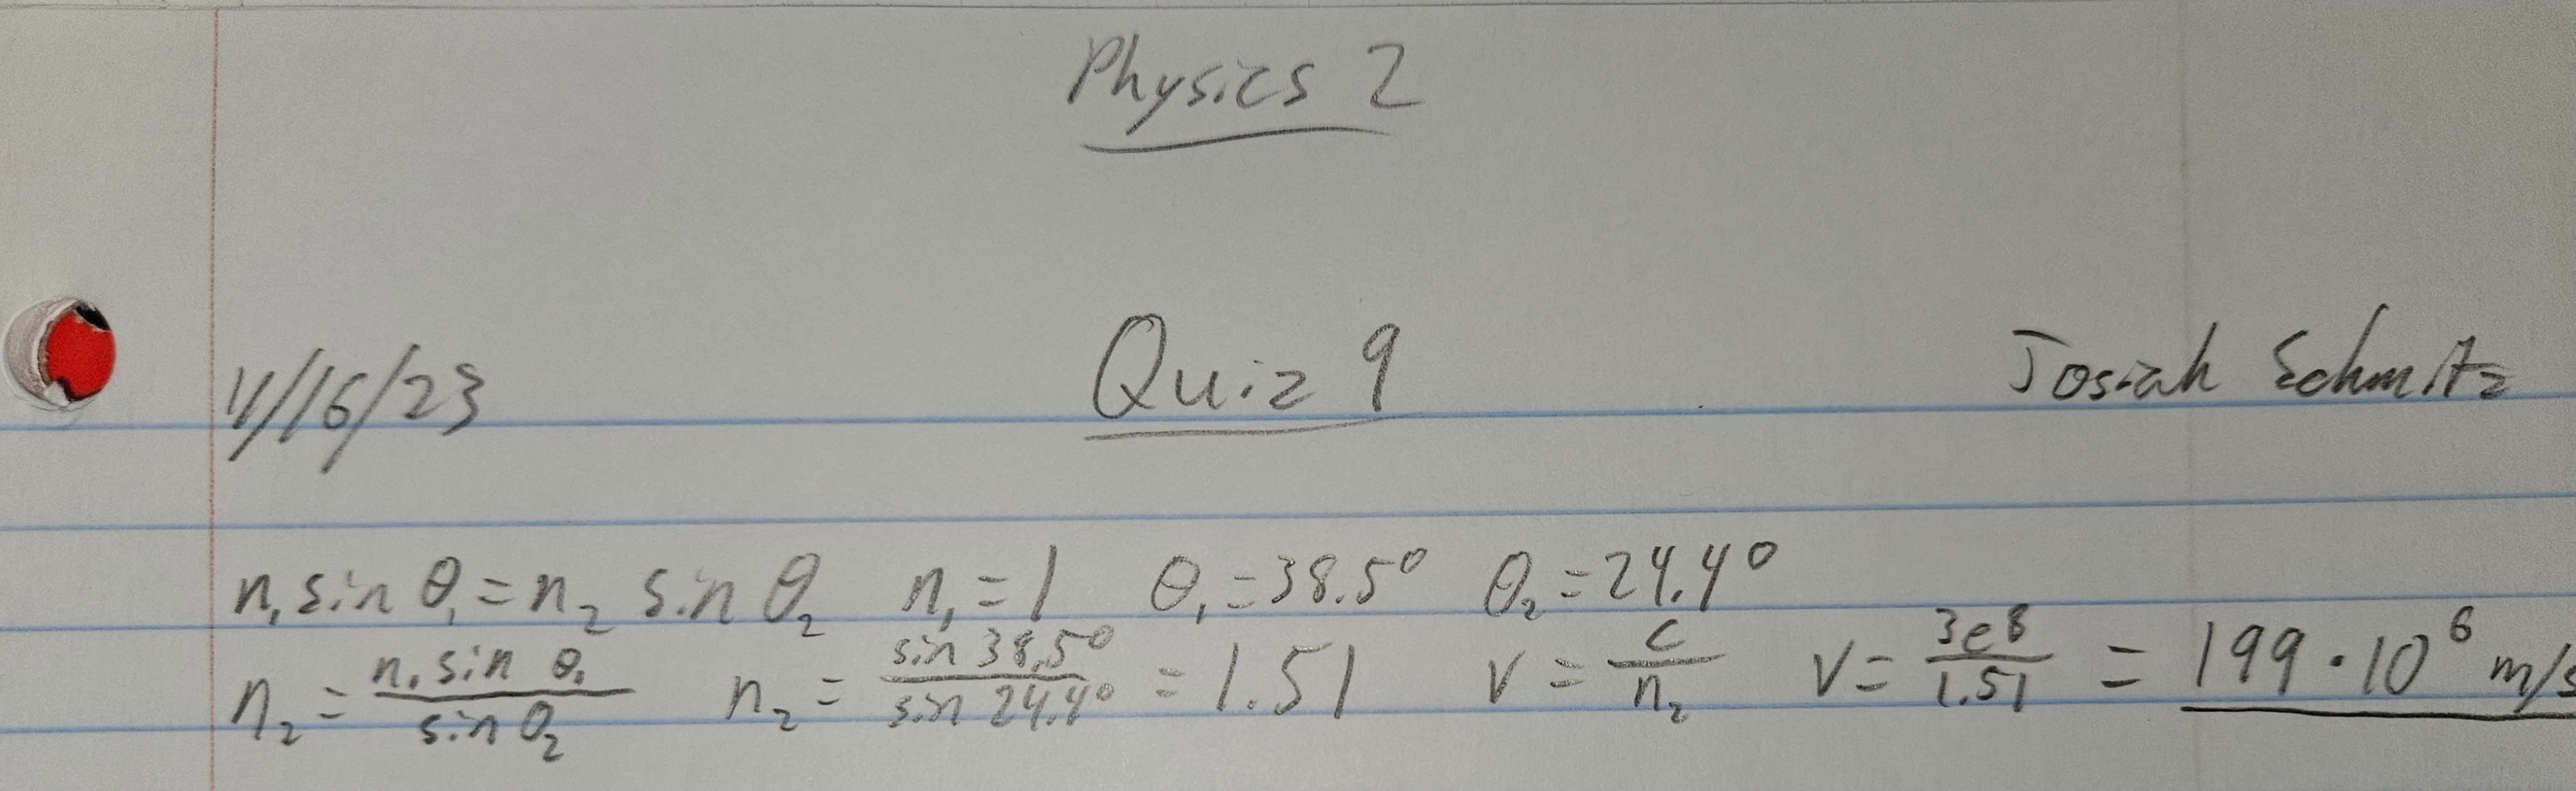 Physics 2
4/16/23 Quiz 9 Josiah Schmitz
n₁ sin θ₁ = n₂ sin θ₂ n₁ = 1 θ₁ = 38.5° θ₂ = 24.4°
n₂ = n₁ sin θ₁ / sin θ₂ n₂ = sin 38.5° / sin 24.4° = 1.51 v = c / n₂ v = 3e8 / 1.51 = 199 · 10⁶ m/s